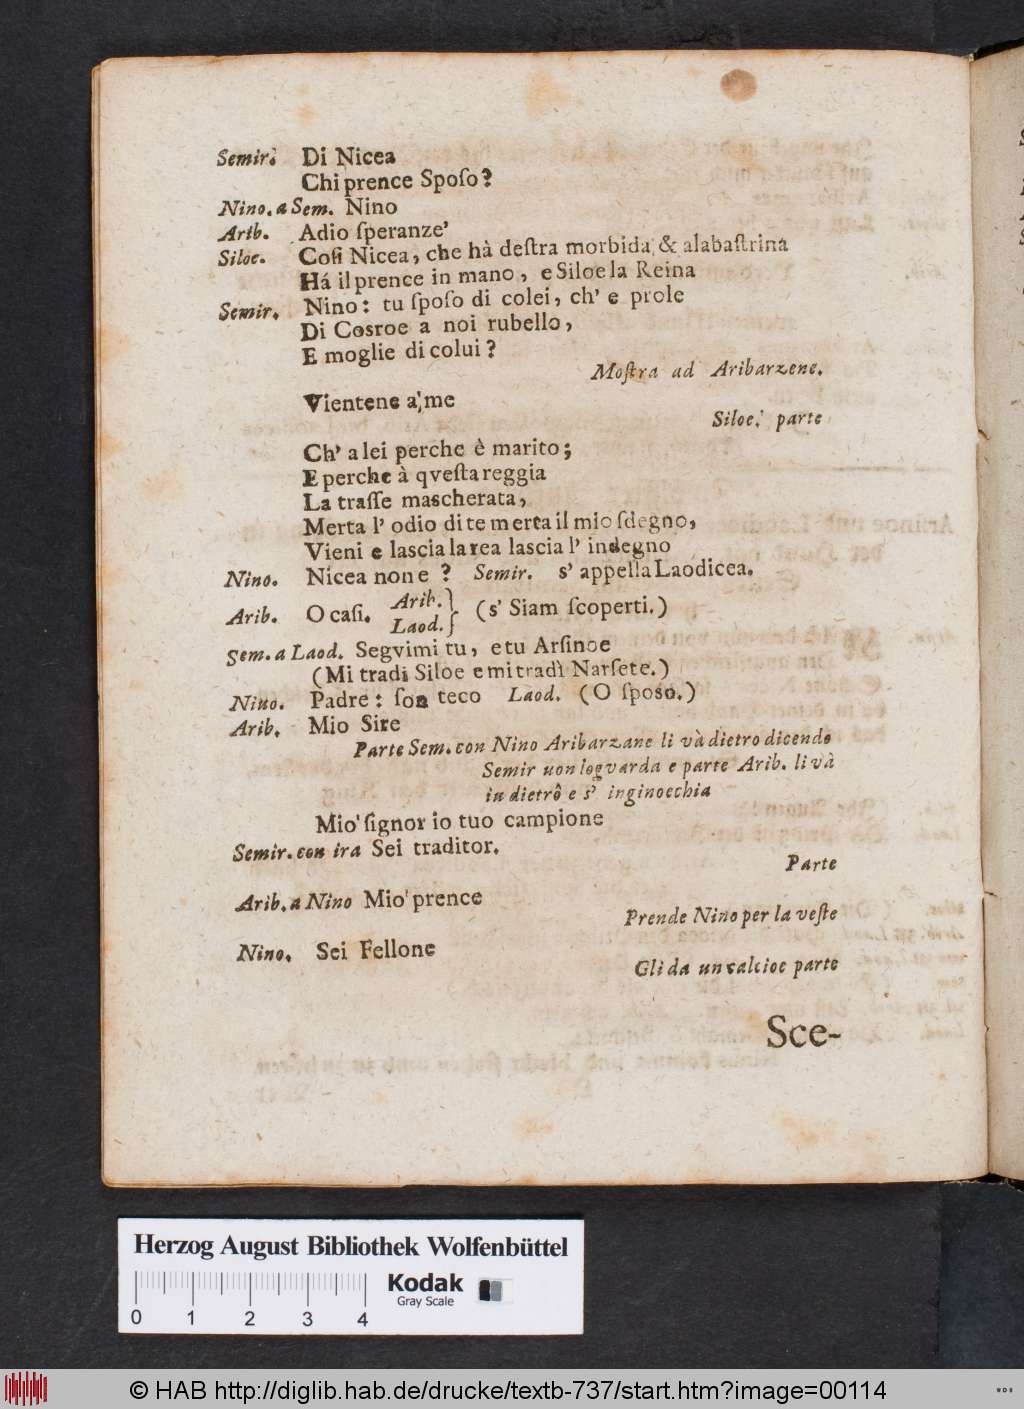 Semir. Di Nicea
Chi prence Spoſo?
Nino. a Sem. Nino
Arib. Adio ſperanze'
Siloe. Coſi Nicea, che hà deſtra morbida & alabaſtrina
Há il prence in mano, e Siloe la Reina
Semir. Nino: tu ſpoſo di colei, ch' e prole
Di Cosroe a noi rubello,
E moglie di colui?
Moſtra ad Aribarzene.
Vientene a' me
Siloe. parte
Ch' a lei perche è marito;
E perche à qveſta reggia
La traſſe mascherata,
Merta l' odio di te merta il mio ſdegno,
Vieni e lascia la rea lascia l' indegno
Nino. Nicea non e ? Semir. s' appella Laodicea.
Arib. O caſi. Arib. Laod.} (s' Siam ſcoperti.)
Sem. a Laod. Segvimi tu, e tu Arſinoe
(Mi tradi Siloe e mi tradì Narſete.)
Nino. Padre: ſon teco Laod. (O ſposo.)
Arib. Mio Sire
Parte Sem. con Nino Aribarzane li và dietro dicendo
Semir non logvarda e parte Arib. li và
in dietrô e s' inginocchia
Mio' ſignor io tuo campione
Semir. con ira Sei traditor.
Parte
Arib. a Nino Mio' prence
Prende Nino per la veſte
Nino. Sei Fellone
Gli da un calcioe parte
Sce-
Herzog August Bibliothek Wolfenbüttel
Kodak
Gray Scale
0 1 2 3 4
© HAB http://diglib.hab.de/drucke/textb-737/start.htm?image=00114